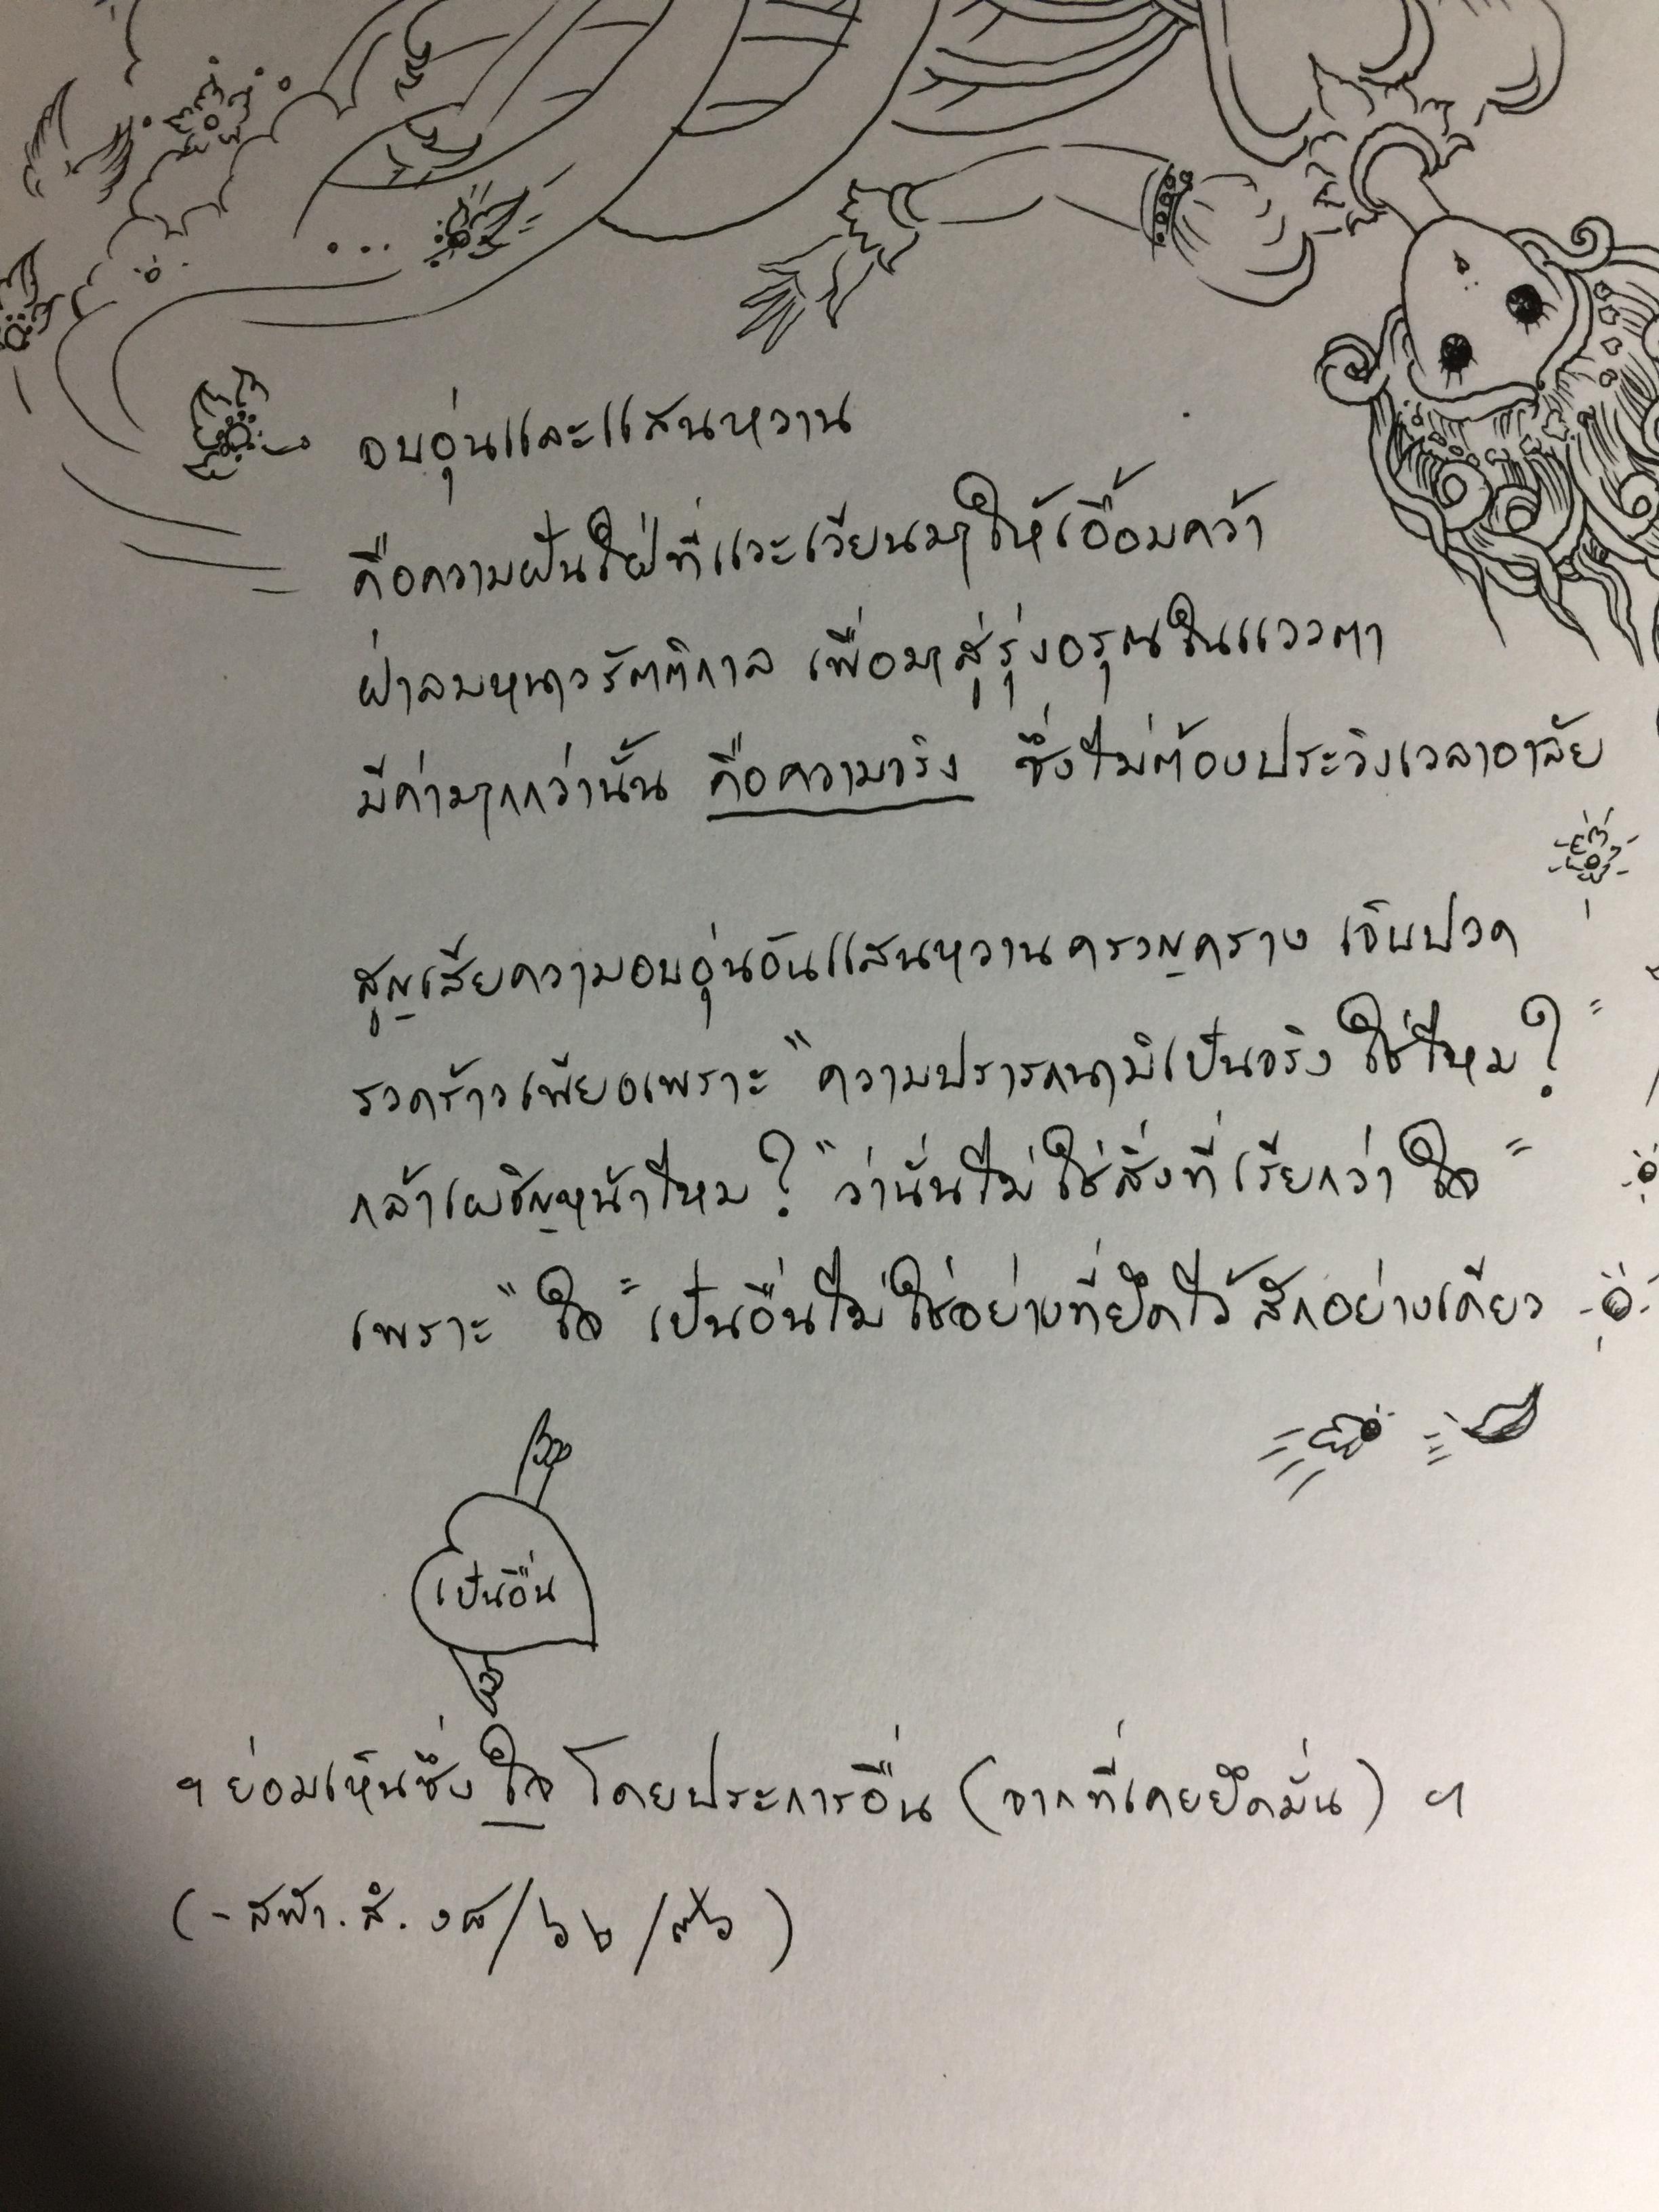 อบอุ่นและแสนหวาน
คือความฝันใฝ่ที่แวะเวียนมาให้เอื้อมคว้า
ฝ่าลมหนาวรัตติกาล เพื่อมาสู่รุ่งอรุณในแววตา
มีค่ามากกว่านั้น คือความจริง ซึ่งไม่ต้องประวิงเวลาอาลัย
สูญเสียความอบอุ่นอันแสนหวานครวญคราง เจ็บปวด
รวดร้าวเพียงเพราะ "ความปรารถนามิเป็นจริง ใช่ไหม?"
กล้าเผชิญหน้าไหม? "ว่านั่นไม่ใช่สิ่งที่เรียกว่า ใจ"
เพราะ "ใจ" เป็นอื่นไม่ใช่อย่างที่ยึดไว้ สักอย่างเดียว
เป็นอื่น
ฯ ย่อมเห็นซึ่ง ใจ โดยประการอื่น (จากที่เคยยึดมั่น) ฯ